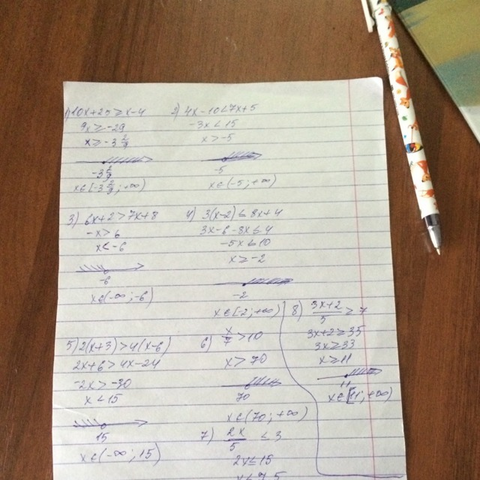 1) 10x+25≥x-4
9x≥-29
x≥-3 2/9
-3 2/9
x∈[-3 2/9; +∞)
2) 4x-10<7x+5
-3x<15
x>-5
-5
x∈(-5; +∞)
3) 6x+2>7x+8
-x>6
x<-6
-6
x∈(-∞; -6)
4) 3(x-2)≤8x+4
3x-6-8x≤4
-5x≤10
x≥-2
-2
x∈[-2; +∞)
5) 2(x+3)>4(x-6)
2x+6>4x-24
-2x>-30
x<15
15
x∈(-∞; 15)
6) x/7>10
x>70
70
x∈(70; +∞)
7) 2x/5≤3
2x≤15
8) 3x+2/5≥7
3x+2≥35
3x≥33
x≥11
11
x∈[11; +∞)